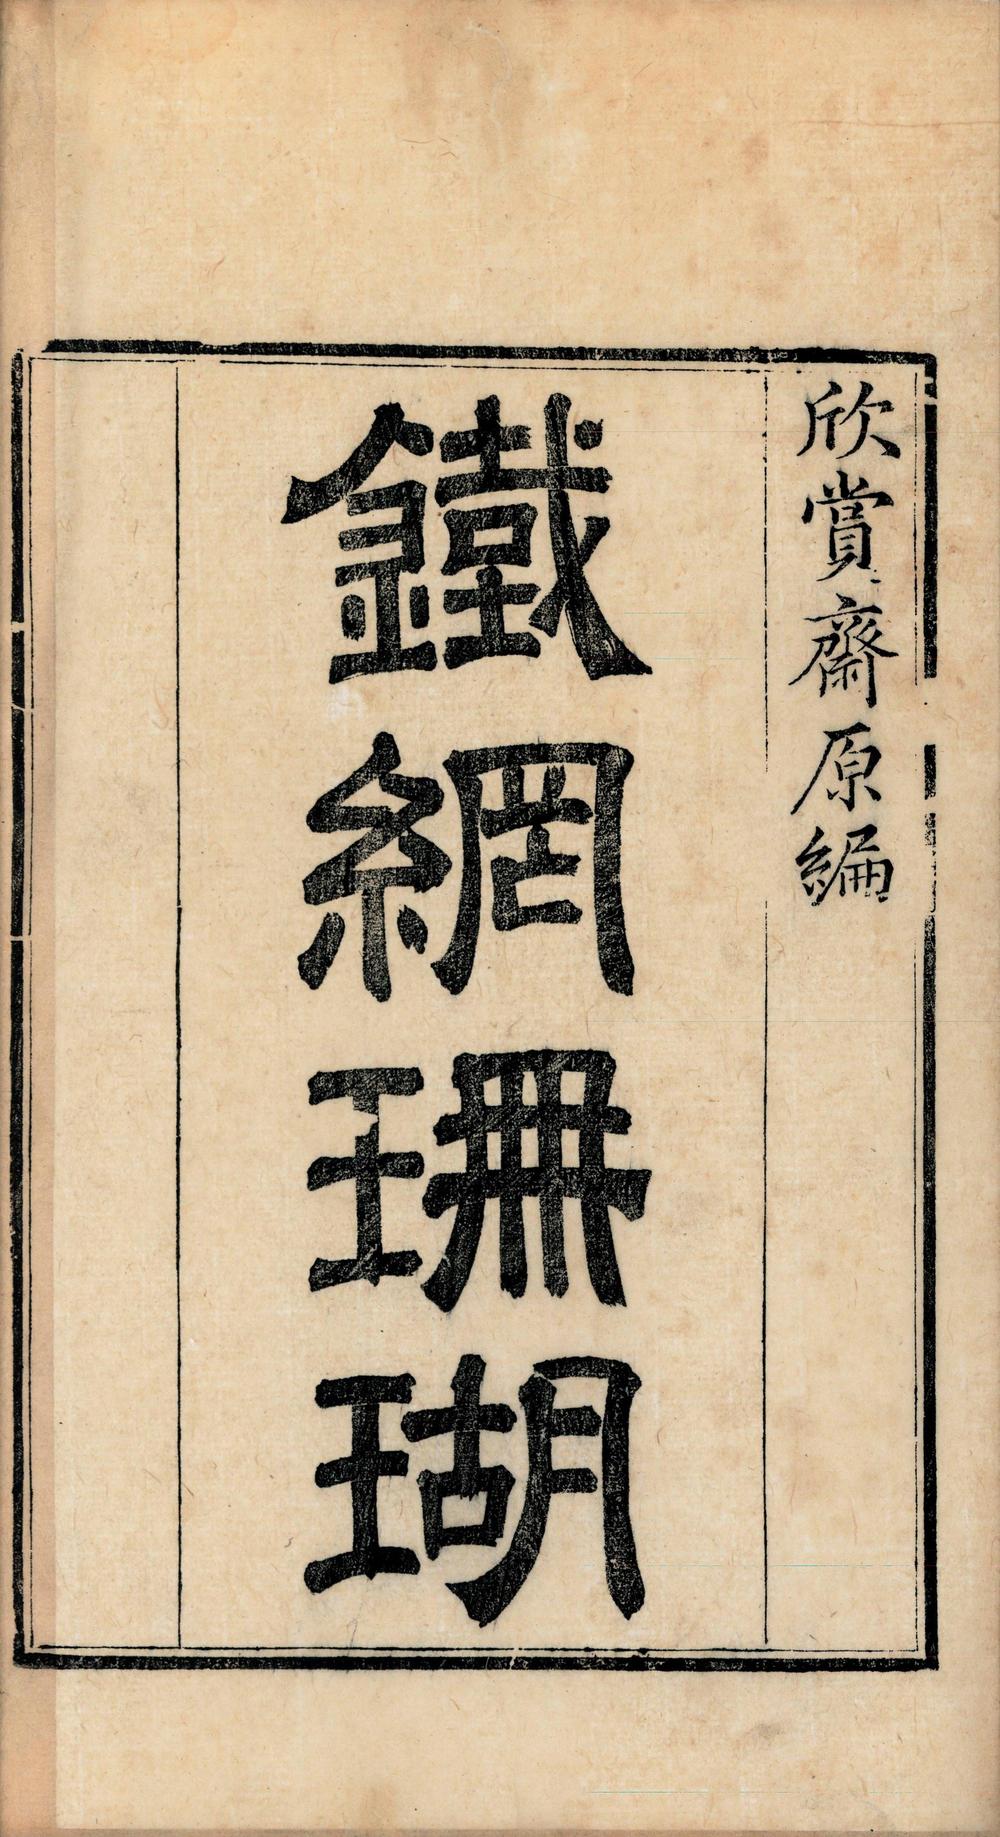 欣賞齋原編
鐵網珊瑚